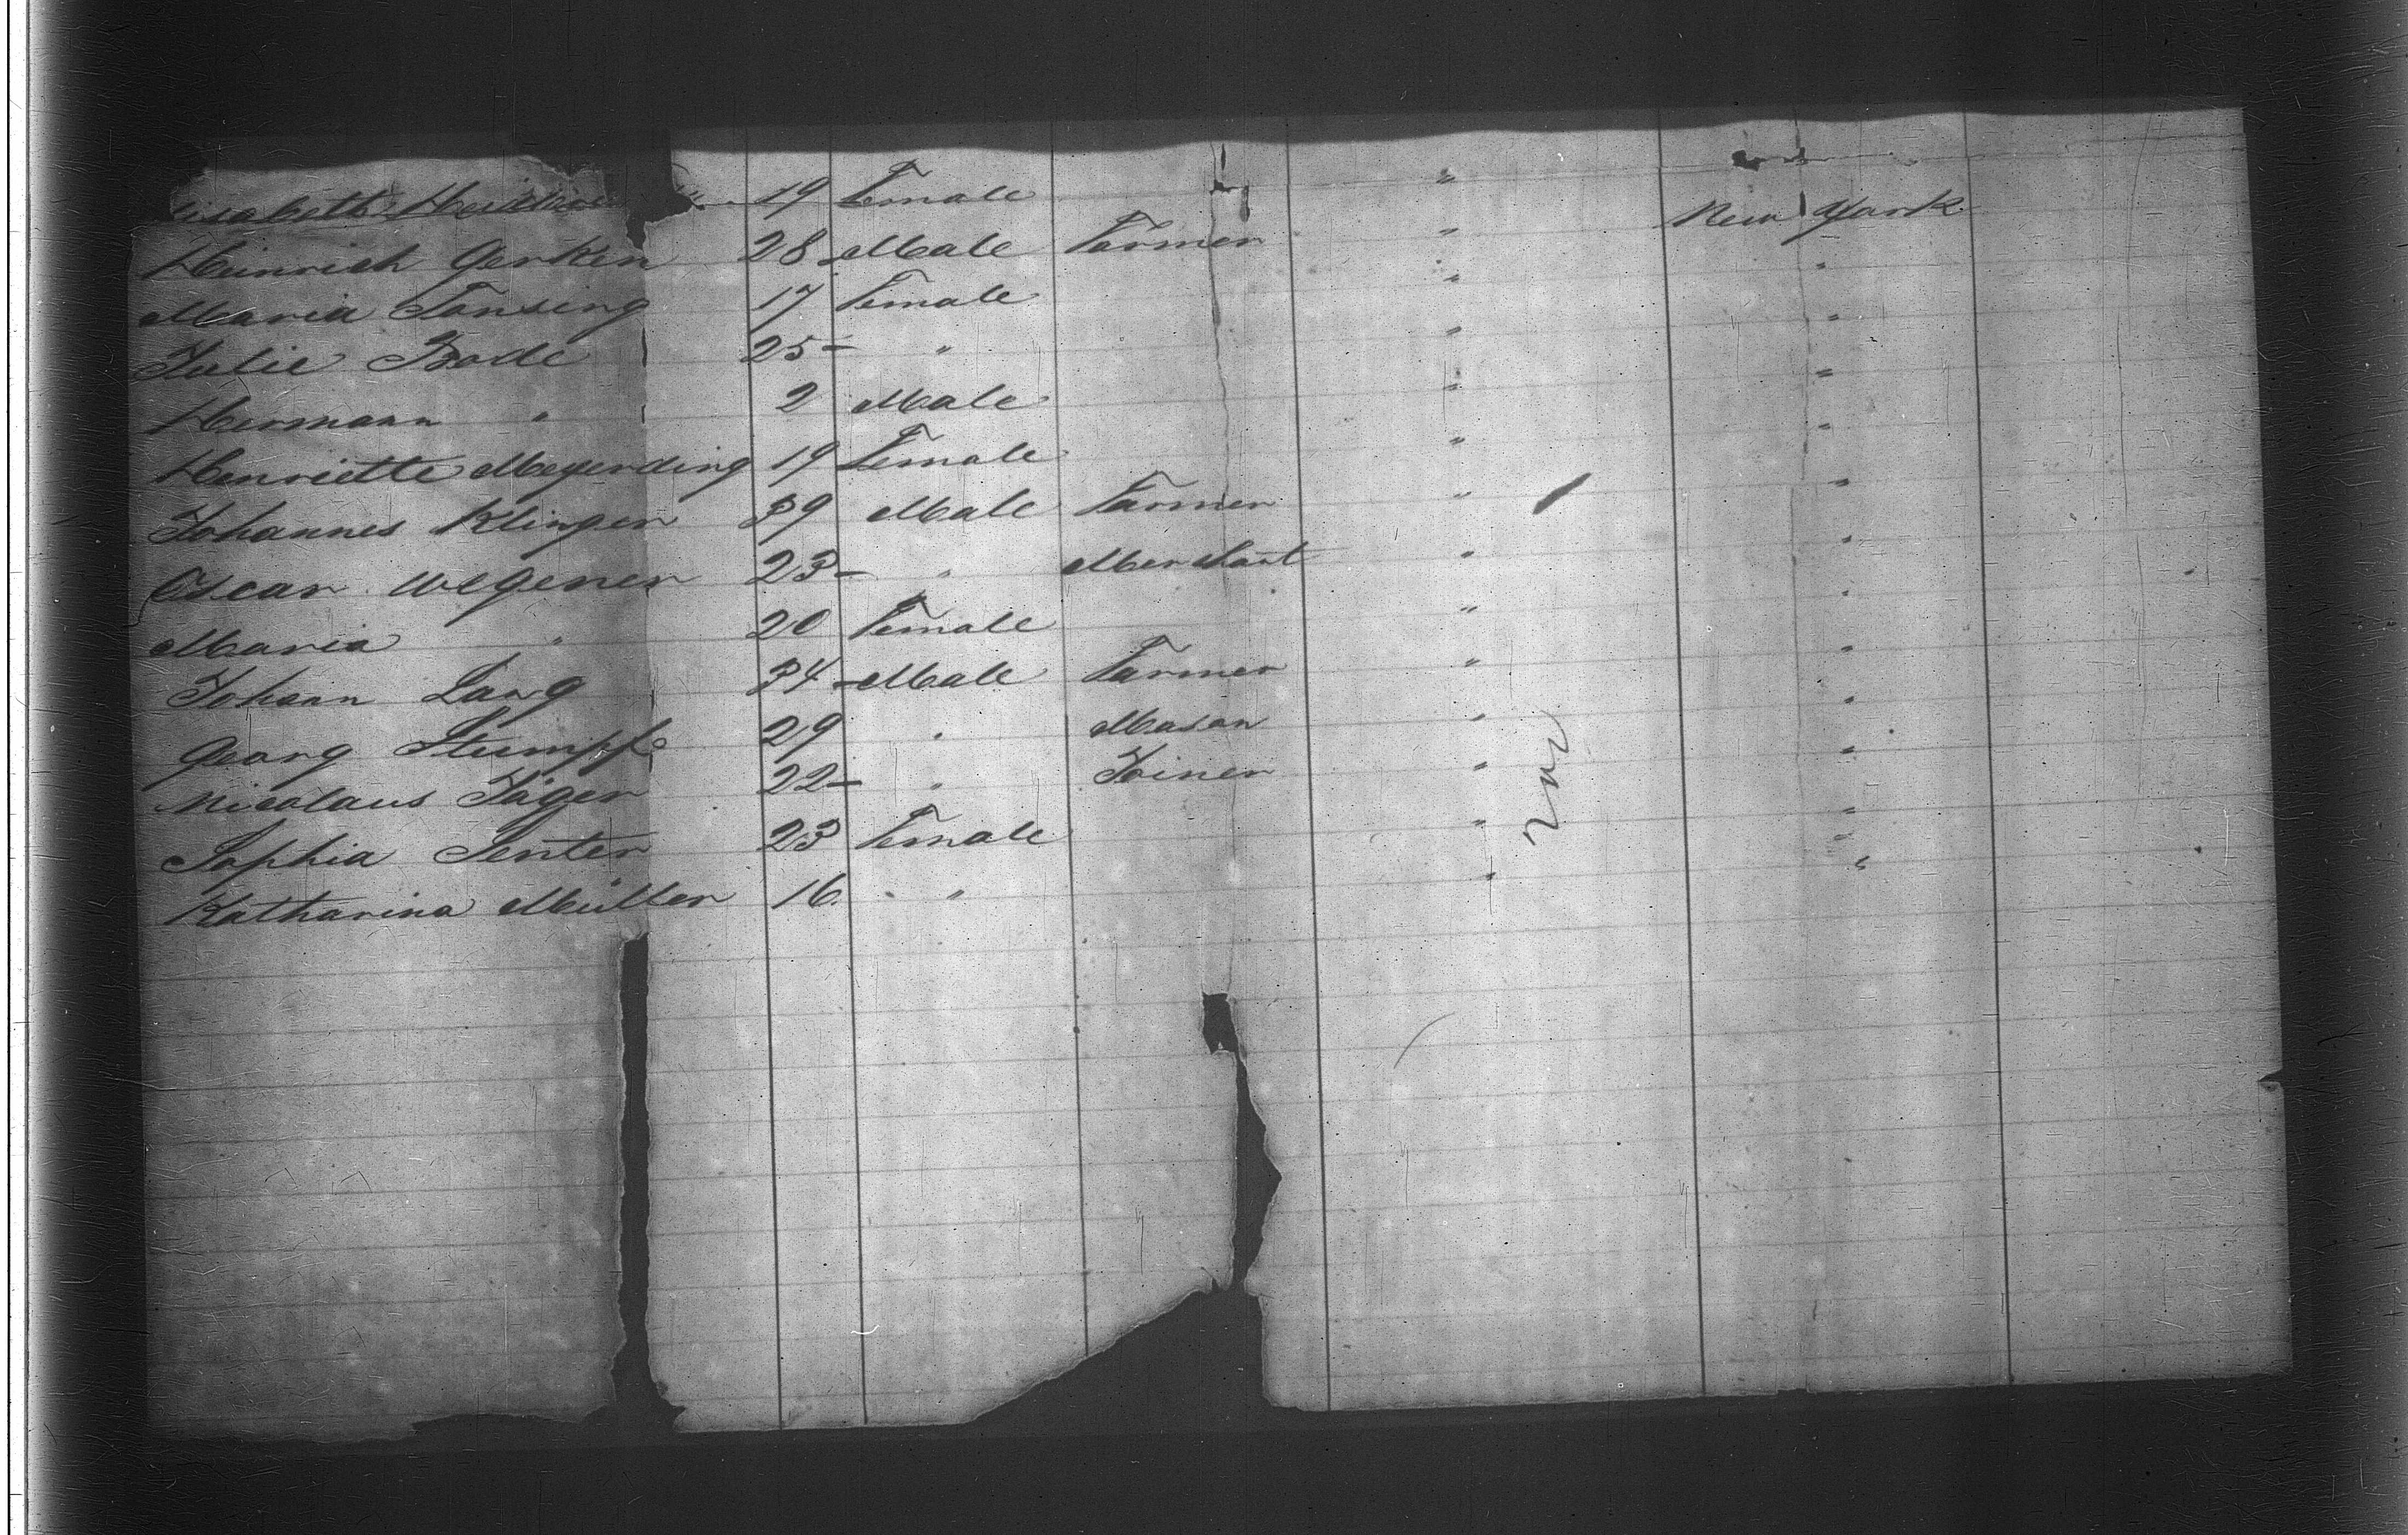 Elisabeth 19 Female "
Heinrich Gerken 28 Male Farmer " New York
Maria Tonsing 17 Female " "
Julie Bode 25 - " " "
Hermann " 2 Male " "
Henriette Meyerding 19 Female " "
Johannes Klinger 39 Male Farmer " "
Oscar Wegener 23 - " Merchant " "
Maria " 20 Female " "
Johann Lang 34 - Male Farmer " "
Georg Stumpf 29 " Mason " "
Nicolaus Jäger 22 - " Joiner " "
Sophia Senter 23 Female " "
Katharina Müller 16 " " "